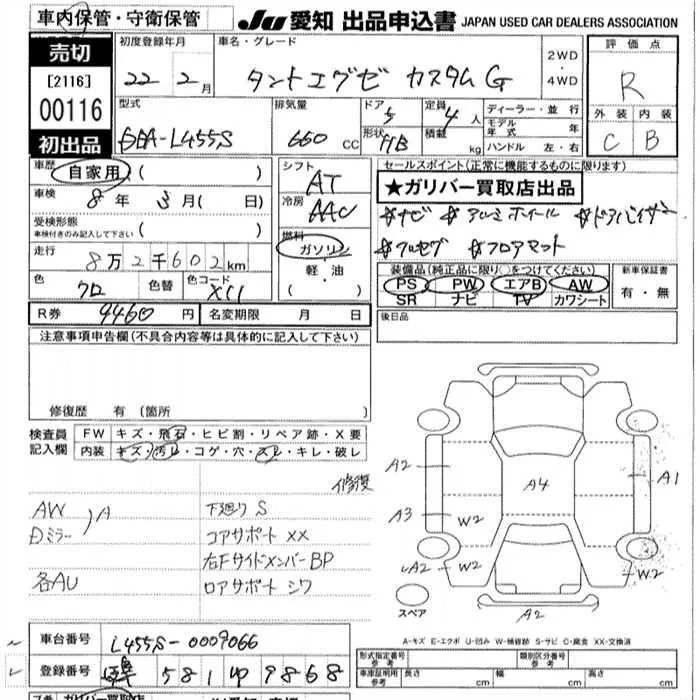 車内保管・守衛保管
JU 愛知 出品申込書 JAPAN USED CAR DEALERS ASSOCIATION
売切
[2116]
00116
初出品
初度登録年月
22 年 2 月
車名・グレード
タントエグゼ カスタムG
2WD
・
4WD
評価点
R
外装 内装
C B
型式
DBA-L455S
排気量
660 cc
ドア 5
形状 HB
定員 4 人
積載 kg
ディーラー・並行
モデル年式 年
ハンドル 左・右
車歴 自家用 ( )
車検 8年 3月( 日)
受検形態
車検付きのみ記入して下さい ( )
走行 8万2千602km
色 クロ 色替 色コード X11
シフト AT
冷房 AAC
燃料
ガソリン
・
軽・油
( )
セールスポイント(正常に機能するものに限ります)
★ガリバー買取店出品
☆ナビ ☆アルミホイール ☆ドアバイザー
☆フルセグ ☆フロアマット
装備品(純正品に限り○をつけてください)
PS PW エアB AW
SR ナビ TV カワシート
新車保証書
有・無
R券 9460 円 名変期限 月 日
後日品
注意事項申告欄(不具合内容等は具体的に記入して下さい)
修復歴 有 (箇所 )
検査員記入欄
FW キズ・飛石・ヒビ割・リペア跡・X要
内装 キズ・汚レ・コゲ・穴・スレ・キレ・破レ
修復
AW
Dミラー ) A
各AU
下廻り S
コアサポート XX
右Fサイドメンバー BP
ロアサポート シワ
A2
A3
W2
A2
W2
A4
A1
W2
W2
A2
スペア
A-キズ E-エクボ U-凹み W-補修跡 S-サビ C-腐食 XX-交換済
車台番号 L455S-0009066
登録番号 岐阜 581 ゆ 9868
形式指定番号
参考
類別区分番号
参考
車庫証明用
参考
長さ cm 幅 cm 高さ cm
ガリバー買取店